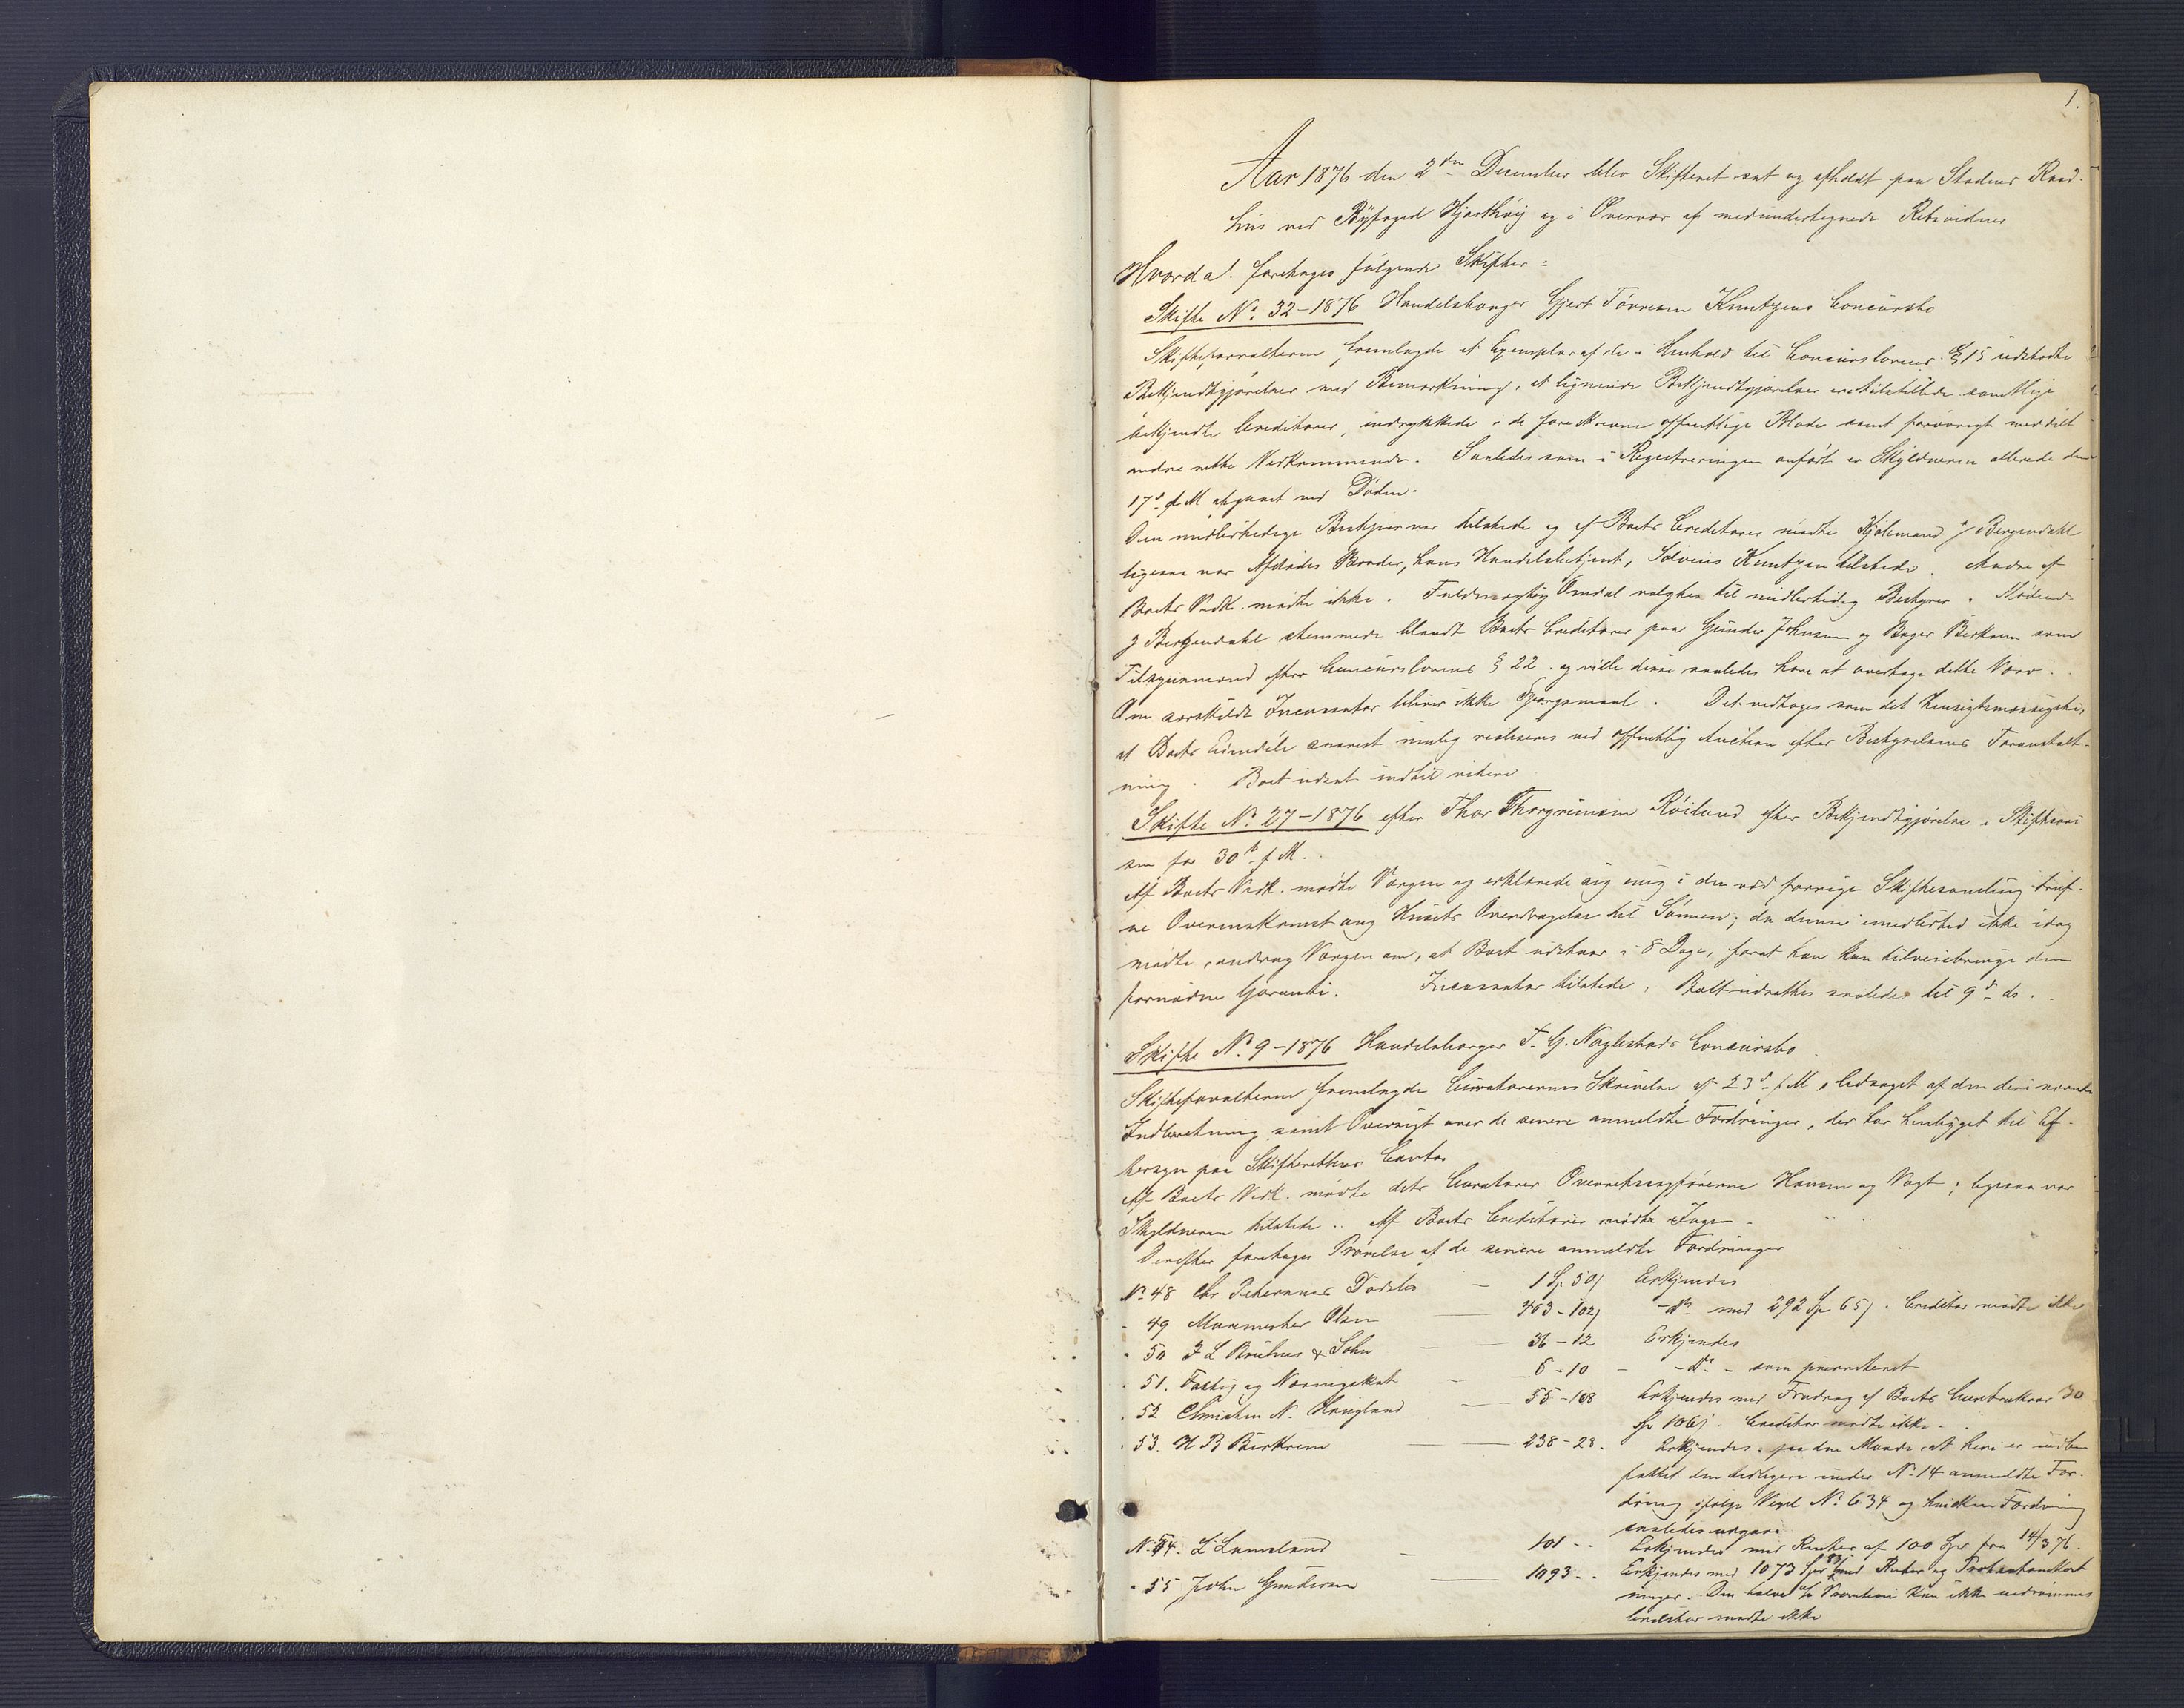 1.
Aar 1876 den 2den December blev Skifteret sat og afholdt paa Stadens Raad-
hus ved Byfoged Hjorthøy og i Overvær af medundertegnede Retsvidner
Hvorda! foretoges følgende Skifter:
Skifte No. 32-1876 Handelsborger Gjert Tørresen Knutzens Concursbo
Skifteforvalteren fremlagde et Exemplar af de i Henhold til Concurslovens § 15 udstedte
Bekjendtgjørelser med Bemærkning, at lignende Bekjendtgjørelser ere tilstillede samtlige
bekjendte Creditorer, indrykkede i de foreskrevne offentlige Blade samt forøvrigt meddelt
andre rette Vedkommende. Saaledes som i Registreringen anført er Skyldneren allerede den
17d f. M. afgaaet ved Døden.
Den midlertidige Bestyrer var tilstede og af Boets Creditorer mødte J. Bergendahl
ligesaa var Afdødes Broder, hans Handelsbetjent, Knutzen tilstede. Andre af
Boets Vedk. mødte ikke. Fuldmægtig Omdal valgtes til midlertidig Bestyrer. Mødende
J Bergendahl stemmede blandt Boets Creditorer paa Gunder Johnsen og Bager Birkrem som
Tilsynsmænd efter Concurslovens § 22. og ville disse saaledes have at overtage dette Værv.
Om særskildt Incassator bliver ikke Spørgsmaal. Det vedtoges som det hensigtsmæssigste,
at Boets Eiendele snarest mulig realiseres ved offentlig Auction efter Bestyrelsens Foranstalt-
ning. Boet udsat indtil videre.
Skifte No. 27-1876 efter Thor Thorgrimsen Røiland efter Bekjendtgjørelse i
sen for 30te f. M.
Af Boets Vedk. mødte Værgen og erklærede sig enig i den ved forrige Skiftesamling truf-
ne Overenskomst ang Husets Overdragelse til Sønnen; da denne imidlertid ikke idag
mødte, androg Værgen om, at Boet udstaar i 8 Dage, forat han kan tilveiebringe den
fornødne Garanti. Incassator tilstede. Boet udsattes saaledes til 9d ds.
Skifte No. 9-1876 Handelsborger T. G. Naglestads Concursbo
Skifteforvalteren fremlagde Curatorernes Skrivelse af 23d f. M., ledsaget af den deri nævnte
Indberetning samt Oversigt over de senere anmeldte Fordringer, der har henligget til Ef-
tersyn paa Skifterettens Contor
Af Boets Vedk. mødte dets Curatorer Overretssagførerne Hansen og Vogt; ligesaa var
Skyldneren tilstede. Af Boets Creditorer mødte Ingen.
Derefter foretoges Prøvelse af de senere anmeldte Fordringer
No. 48 Chr Petersens Dødsbo — 1 Sp. 50 Erkjendes
- 49 Muremester Olsen — 363-102 -do- med 292 Sp 65. Creditor mødte ikke
- 50 J L Bruhns & Sohn — 36-12 Erkjendes
- 51. Fattig og Næringsskat — 6-10 - do - som prioriteret
- 52 Christen N. Haugland — 55-108 Erkjendes med Fradrag af Boets Contrakrav 30
Sp 106. Creditor mødte ikke.
- 53. H B Birkrem — 238-28. Erkjendes paa den Maade, at heri er indbe-
fattet den tidligere under No. 14 anmeldte For-
dring ifølge Vexel No. 634 og hvilken Fordring
saaledes udgaar
No. 54. L. Lunsland — 101 - - Erkjendes med Renter af 100 Spd fra 14/3 76.
- 55 John Gundersen — 1093 - - Erkjendes med 1073 Spd 83 med Renter og Protestomkost
ninger. Den halve % Provision kan ikke indrømmes
Creditor mødte ikke